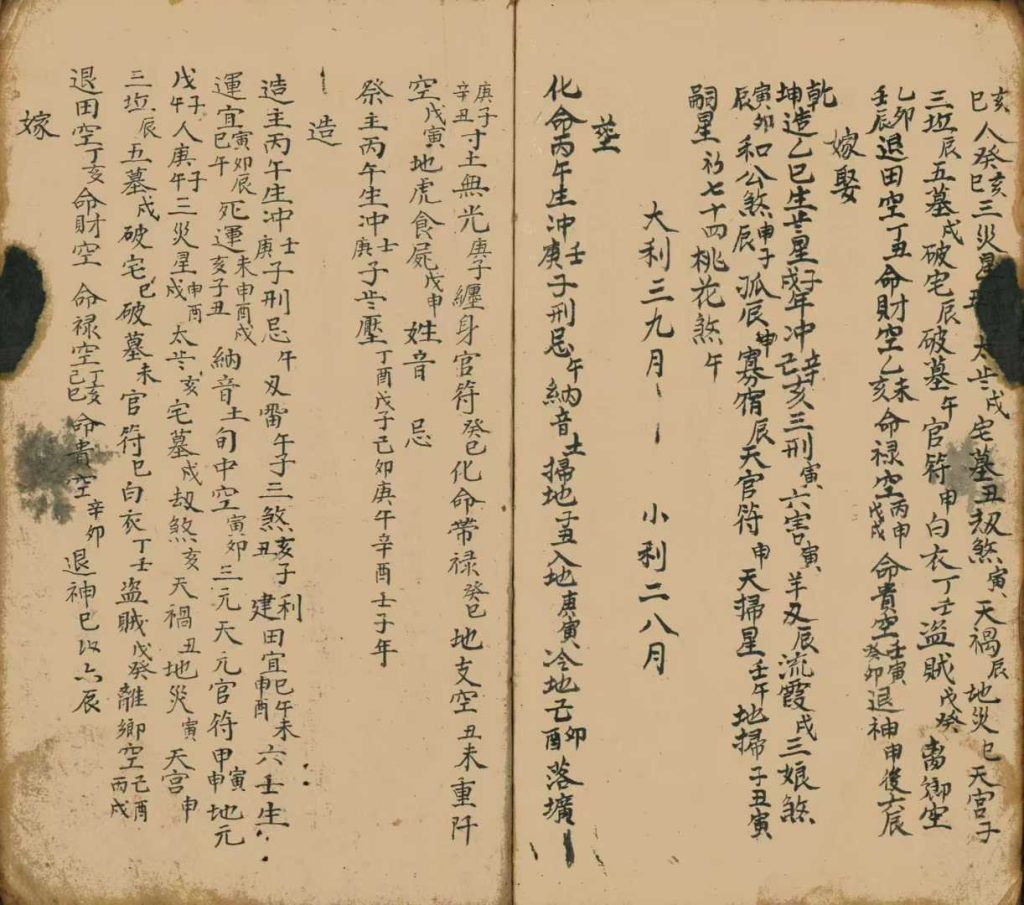 亥巳人癸亥癸巳三災星丑太歲戌宅墓丑刼煞寅天禍辰地災巳天宮子
三坵辰五墓戌破宅辰破墓午官符申白衣丁壬盗賊戊癸离鄉空
乙卯壬辰退田空丁丑命財空乙未乙亥命禄空丙申戊戌命貴空壬寅癸卯退神申後六辰
嫁娶
乾坤造乙巳生歲星戌年冲辛己亥三刑寅六害寅羊刃辰流霞戌三娘煞
寅卯辰和公煞辰申子孤辰申寡宿辰天官符申天掃星壬午地掃子丑寅
嗣星七十四桃花煞午
大利三九月 小利二八月
塟
化命丙午生冲壬庚子刑忌午納音土掃地入地庚寅冷地己卯己酉落壙
庚子辛丑寸土無光庚子纏身官符癸巳化命帶禄癸巳地支空丑未重阡
空戊寅地虎食屍戊申姓音忌
祭主丙午生冲壬庚子歲壓丁酉戊子己卯庚午辛酉壬子年
造
造主丙午生冲壬庚子刑忌午刃雷午子三煞亥子丑利建田宜巳午未申酉六壬生
運宜寅卯辰巳午死運未申酉戌亥子丑納音土旬中空寅卯三元天元官符甲寅甲申地元
戊子戊午人庚子庚午三災星申酉戌太歲亥宅墓戌刼煞亥天禍丑地災寅天宮申
三坵辰五墓戌破宅巳破墓未官符巳白衣丁壬盗賊戊癸離鄉空己酉丙戌
退田空丁亥命財空命禄空丁亥己巳命貴空辛卯退神巳後六辰
嫁